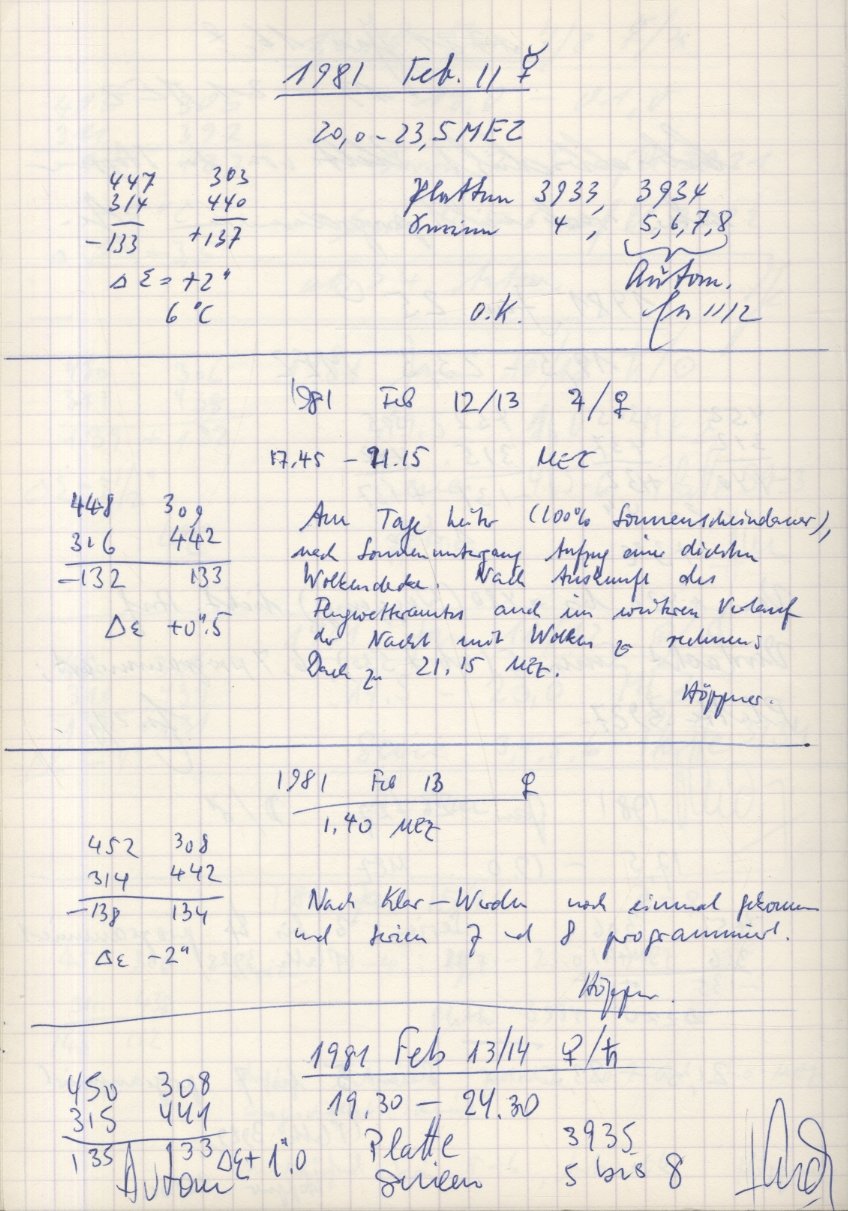 1981 Feb. 11 ☿
20,0 - 23,5 MEZ
447 303
314 440
-133 +137
Δ Σ = +2"
6 °C
Platten 3933, 3934
Serien 4, 5,6,7,8
Autom.
O.K. 11/2
1981 Feb 12/13 ♃/♀
17.45 - 21.15 MEZ
448 309
316 442
-132 133
Δε +0".5
Am Tage heiter (100% Sonnenscheindauer),
nach Sonnenuntergang Aufzug einer dichten
Wolkendecke. Nach Auskunft des
Flugwetteramtes auch im weiteren Verlauf
der Nacht mit Wolken zu rechnen.
Dach zu 21.15 MEZ.
Höppner.
1981 Feb 13 ♀
1,40 MEZ
452 308
314 442
-138 134
Δε -2"
Nach Klar-Werden noch einmal gekommen
und Serien 7 und 8 programmiert.
Höppner.
1981 Feb 13/14 ♀/♄
19.30 - 24.30
450 308
315 441
135 133 Δε + 1".0
Autom
Platte 3935
Serien 5 bis 8